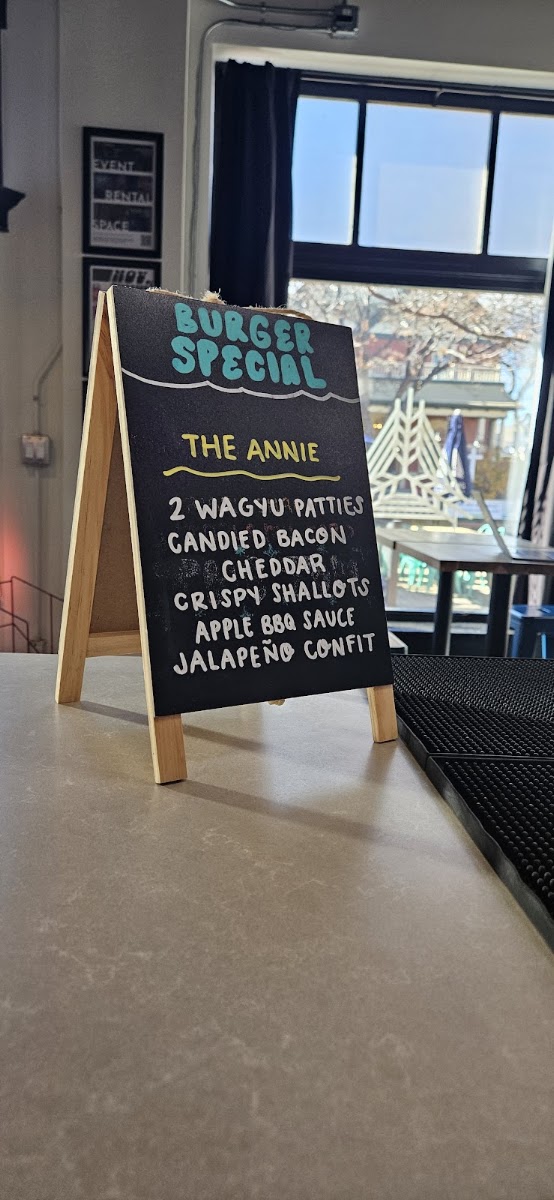 EVENT
RENTAL
SPACE
BURGER
SPECIAL
THE ANNIE
2 WAGYU PATTIES
CANDIED BACON
CHEDDAR
CRISPY SHALLOTS
APPLE BBQ SAUCE
JALAPEÑO CONFIT